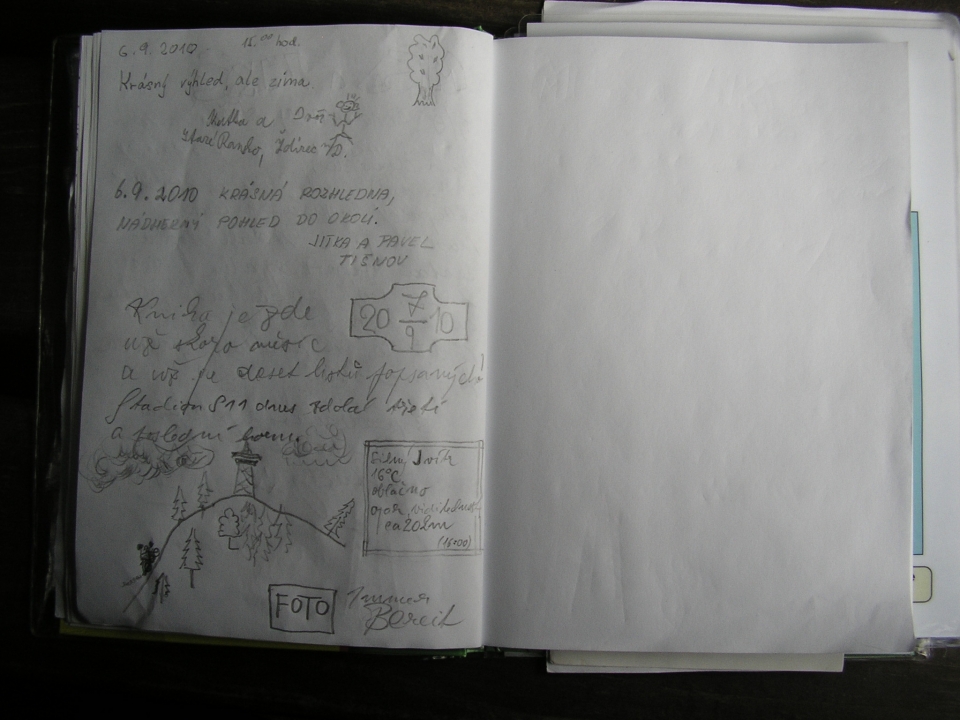 6.9.2010 15.00 hod.
Krásný výhled, ale zima.
Katka a
Staré Ransko, Ždírec
6.9.2010 KRÁSNÁ ROZHLEDNA,
NÁDHERNÝ POHLED DO OKOLÍ.
JITKA A PAVEL
TIŠNOV
Kniha je zde
už skoro měsíc
a už je deset listů popsaných!
20 7 10
9
Stadion S11 dnes zdolal třetí
a poslední
Silný JV vítr
16°C
oblačno
opar, viditelnost
ca 20km
(16:00)
FOTO